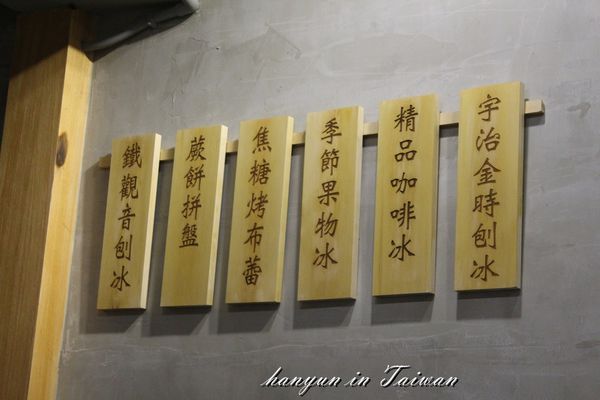 宇治金時刨冰
精品咖啡冰
季節果物冰
焦糖烤布蕾
蕨餅拼盤
鐵觀音刨冰
hanyun in Taiwan